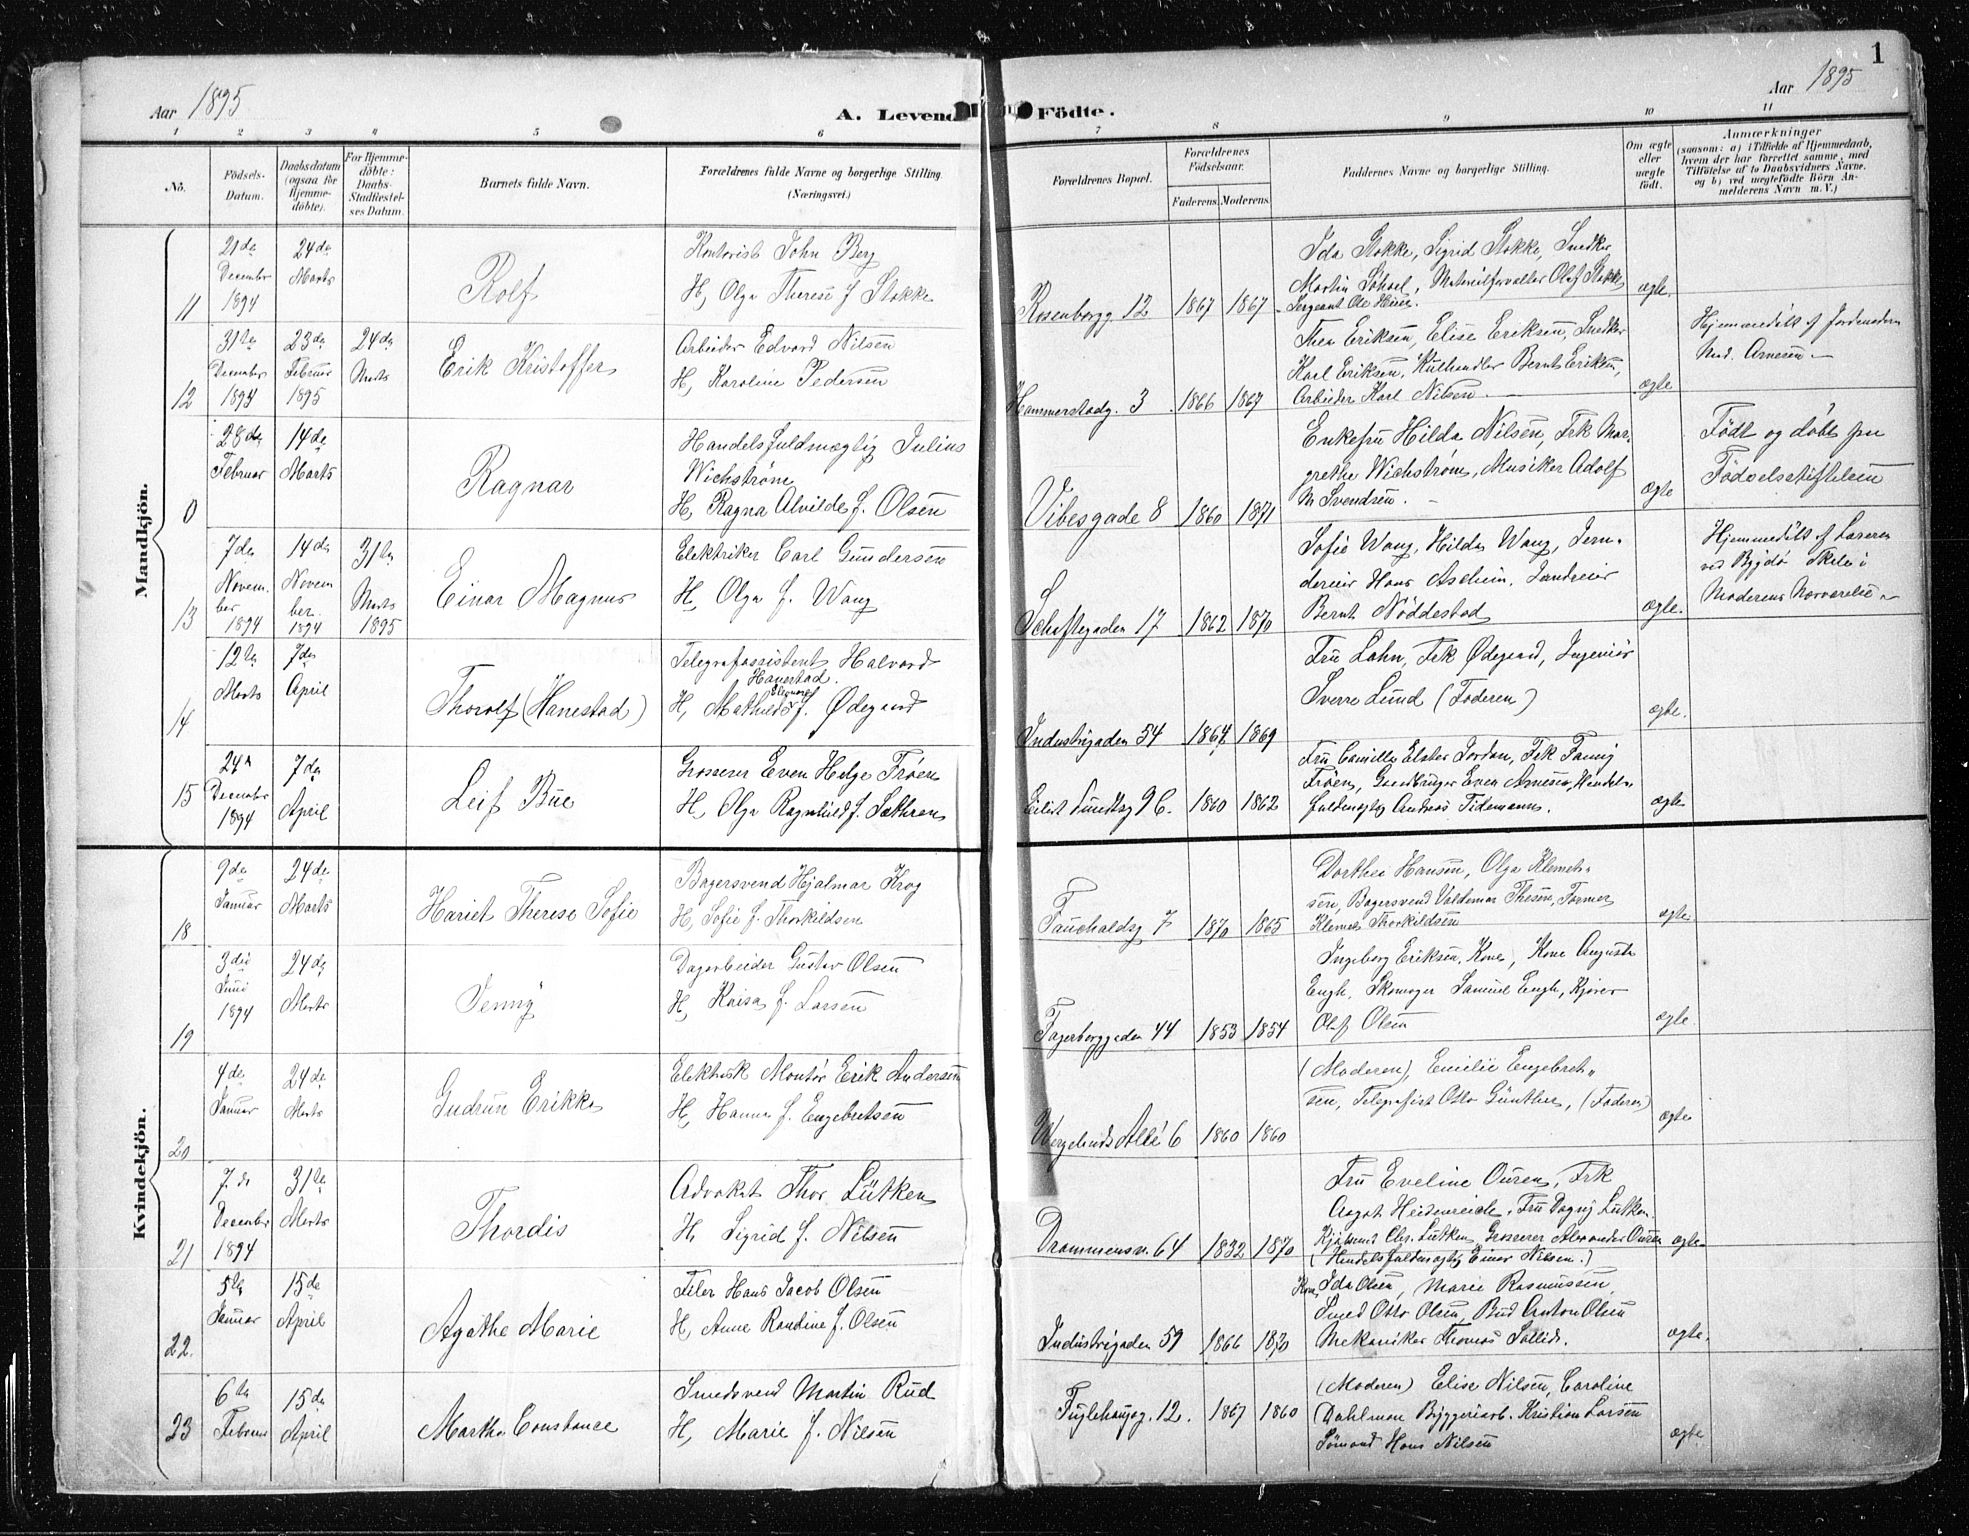 1
Aar 1895
A. Levende Födte.
Aar 1895
1 2 3 4 5 6 7 8 9 10 11
No.
Födsels-
Datum.
Daabsdatum
(ogsaa for
Hjemme-
döbte).
For Hjemme-
döbte:
Daabs-
Stadfæstel-
ses Datum.
Barnets fulde Navn.
Forældrenes fulde Navne og borgerlige Stilling.
(Næringsvei.)
Forældrenes Bopæl.
Forældrenes
Födselsaar.
Faderens. Moderens.
Faddernes Navne og borgerlige Stilling.
Om ægte
eller
uægte
födt.
Anmærkninger
(saasom: a) i Tilfælde af Hjemmedaab,
hvem der har forrettet samme, med
Tilföielse af to Daabsvidners Navne,
og b) ved uægtefödte Börn An-
melderens Navn m. V.)
Mandkjön.
11
21de
December
1894
24de
Marts
Rolf
Kontorist John Berg
H, Olga Therese f. Stokke
Rosenborgg. 12 1867 1867
Ida Stokke, Sigrid Stokke, Snedker
Martin Schael, Materialforvalter Olaf Stokke
Sergeant Ole Huse
ægte.
12
31te
December
1894
23de
Februar
1895
24de
Marts
Erik Kristoffer
Arbeider Edvard Nilsen
H, Karoline Pedersen
Hammerstadg. 3 1866 1867
Thea Eriksen, Elise Eriksen, Snedker
Karl Eriksen, Kulhandler Bernt Eriksen,
Arbeider Karl Nilsen.
ægte
Hjemmedöbt af Jordemoderen
Mad. Arnesen
0
28de
Februar
14de
Marts
Ragnar
Handelsfuldmægtig Julius
Wichstrøm
H, Ragna Alvilde f. Olsen
Vibesgade 8 1860 1871
Enkefru Hilda Nilsen, Frk Mar-
grethe Wichstrøm, Musiker Adolf
M Svendsen.
ægte
Födt og döbt paa
Födselsstiftelsen
13
7de
Novem-
ber
1894
14de
Novem
ber
1894
31te
Marts
1895
Einar Magnus
Elektriker Carl Gundersen
H, Olga f. Wang
Schaftegaden 17 1862 1870
Sofie Wang, Hilda Wang, Jern-
dreier Hans Ascheim, Landreier
Bernt Nöddestad
ægte.
Hjemmedöbt af Læreren
ved Bygdö Skole i
Moderens Nærværelse
14
12te
Marts
7de
April
Thorolf (Hanestad)
Telegrafassistent Halvard
Hanestad.
H, Mathilde Eleonore f. Ødegaard
Industrigaden 54 1864 1869
Fru Lahn, Frk Ødegaard, Ingeniör
Sverre Lund (Faderen)
ægte.
15
24
December
1894
7de
April
Leif Bue
Grosserer Even Helge Frøen
H, Olga Ragnhild f. Sæthren
Eilert Sundtsg 9 C. 1860 1862
Fru Camilla Elster Jordan, Frk Fanny
Frøen, Gaardbruger Even Arnesen, Handels-
fuldmægtig Andreas Tidemann.
ægte
Kvindekjön.
18
9de
Januar
24de
Marts
Hariet Therese Sofie
Bagersvend Hjalmar Krog
H, Sofie f. Thorkildsen
Fauchaldsg 7 1870 1865
Dorthea Hansen, Olga Klemet-
sen, Bagersvend Valdemar Thesen, Former
Klemet Thorkildsen
ægte
19
3die
Juni
1894
24de
Marts
Jenny
Dagarbeider Gustav Olsen
H, Kaisa f. Larsen
Fagerborggaden 44 1853 1854
Ingeborg Eriksen, Kone, Kone Augusta
Engh, Skomager Samuel Engh, Kjörer
Olaf Olsen
ægte.
20
4de
Januar
24de
Marts
Gudrun Erikka
Elektrisk Montör Erik Andersen
H, Hanna f. Engebretsen
Wergelands Allé 6 1860 1860
(Moderen), Emilie Engebret-
sen, Telegrafist Otto Günther, (Faderen)
ægte
21
7de
December
1894
31te
Marts
Thordis
Advokat Thor Lütken
H Sigrid f. Nilsen
Drammensv. 64 1832 1870
Fru Eveline Ouren, Frk
Aagot Heidenreich, Fru Dagny Lütken
Kjöbmd Chr. Lütken, Grosserer Alexander Ouren
(Handelsfuldmægtig Einar Nilsen.)
ægte
22.
5te
Januar
15de
April
Agathe Marie
Filer Hans Jacob Olsen
H, Anne Randine f. Olsen
Industrigaden 59 1866 1870
Kone Ida Olsen, Marie Rasmussen
Smed Otto Olsen, Bud Anton Olsen
Mekaniker Thomas Sollid.
ægte.
23
6te
Februar
15de
April
Martha Constance
Smedsvend Martin Rud
H, Marie f. Nilsen
Fuglehaugg. 12. 1867 1860
(Moderen) Elise Nilsen, Caroline
Dahlman Byggeriarb. Kristian Larsen
Sömand Hans Nilsen
ægte